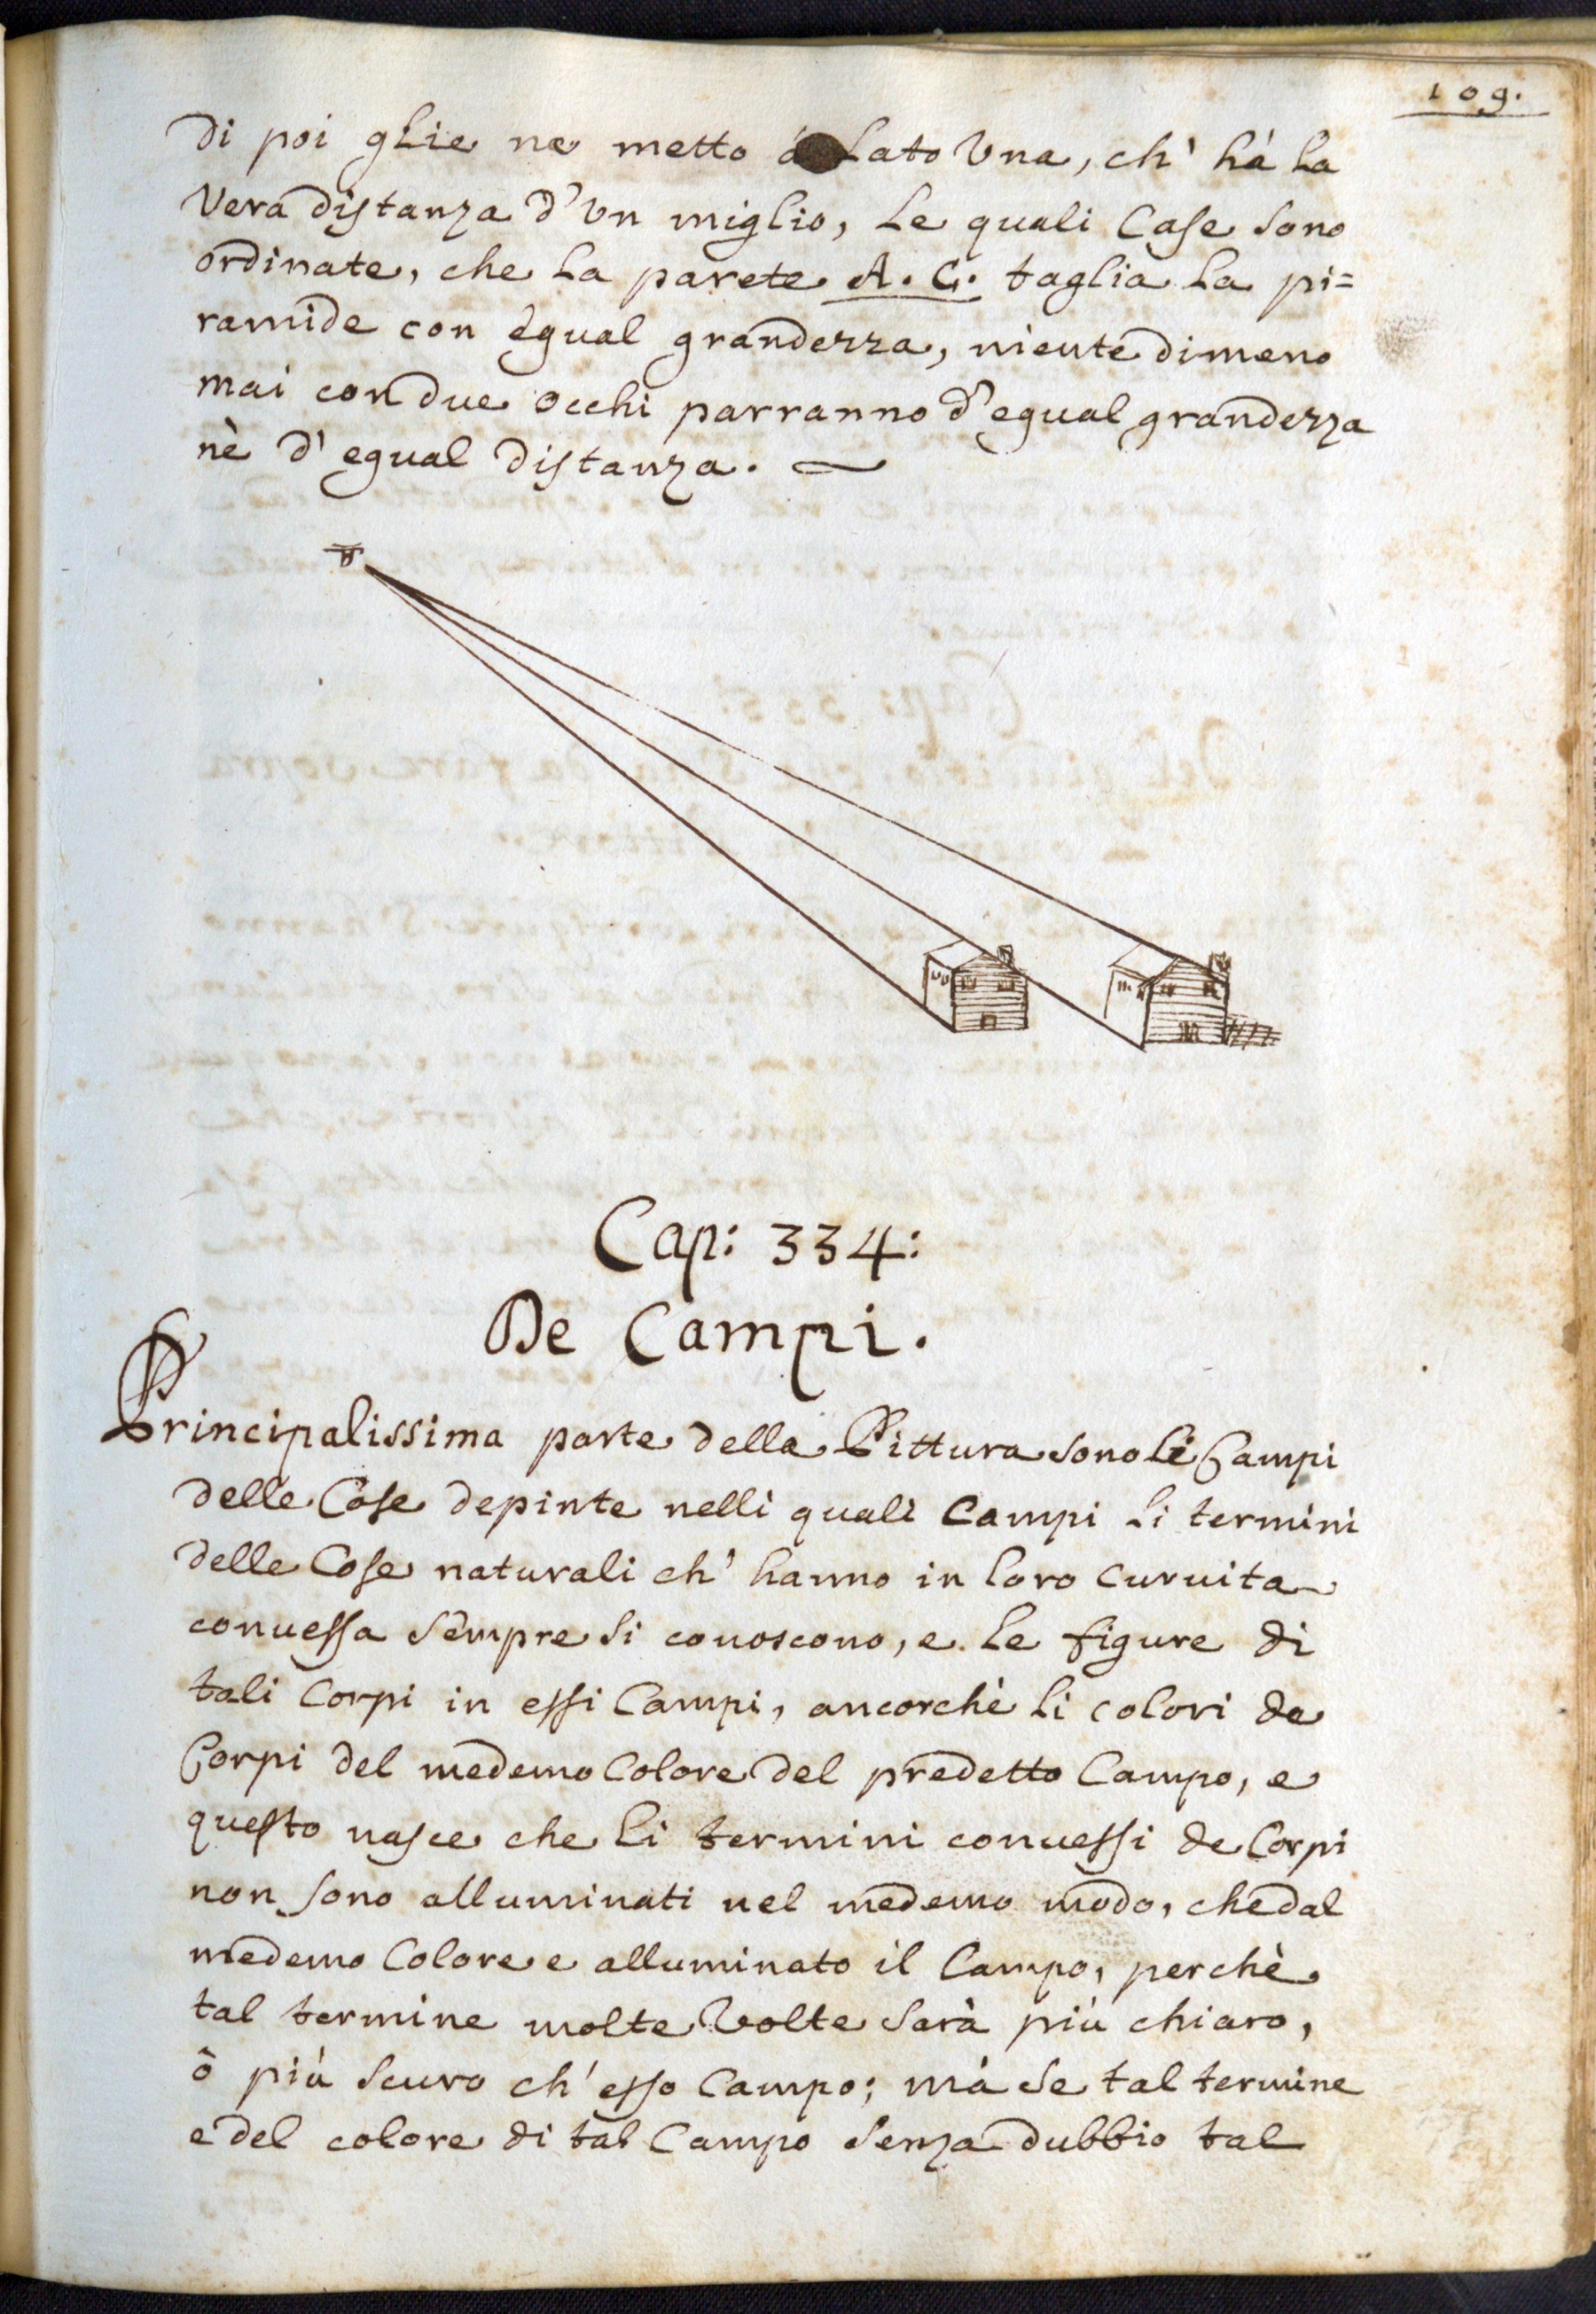 109.
di poi glie ne metto á lato Vna, ch' há la
Vera distanza d'Vn miglio, le quali Case sono
ordinate, che la parete A. C. taglia la pi=
ramide con egual grandezza, niente dimeno
mai con due occhi parranno d'egual grandezza
nè d' egual distanza.
Cap: 334:
De Campi.
Principalissima parte della Pittura sono li Campi
delle Cose depinte nelli quali Campi li termini
delle Cose naturali ch' hanno in loro curuita
conuessa sempre si conoscono, e le figure di
tali Corpi in essi Campi, ancorchè li colori de
Corpi del medemo Colore del predetto Campo, e
questo nasce che li termini conuessi de Corpi
non sono alluminati nel medemo modo, che dal
medemo Colore e alluminato il Campo, perchè
tal termine molte Volte sarà più chiaro,
ô più scuro ch' esso Campo; má se tal termine
e del colore di tal Campo senza dubbio tal